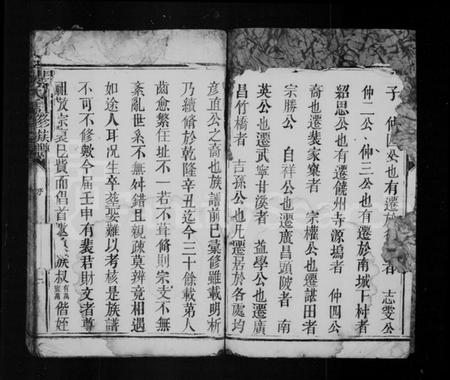 子 仲四公也有遷於者 志雯公
仲二公仲三公也有遷於南城下村者
紹思公也有遷饒州寺源塢者 仲四公
裔也遷裴家窠者 宗權公也遷諶田者
宗勝公 自祥公也遷廣昌頭陂者 南
英公也遷武寧甘溪者 益學公也遷廣
昌竹橋者 吉孫公也凡遷居於各處均
彥直公之裔也族譜前已彙修雖載明析
乃續脩於乾隆辛丑迄今三十餘載第人
齒愈繁住址不一若不葺脩則宗支不無
紊亂世系不無舛錯且親疎莫辨竟相遇
如途人耳况生卒塟娶難以考核是族譜
不可不修歟今届壬申有裴君財文者尊
祖敬宗哀已貲而倡首族叔有萬偕姪